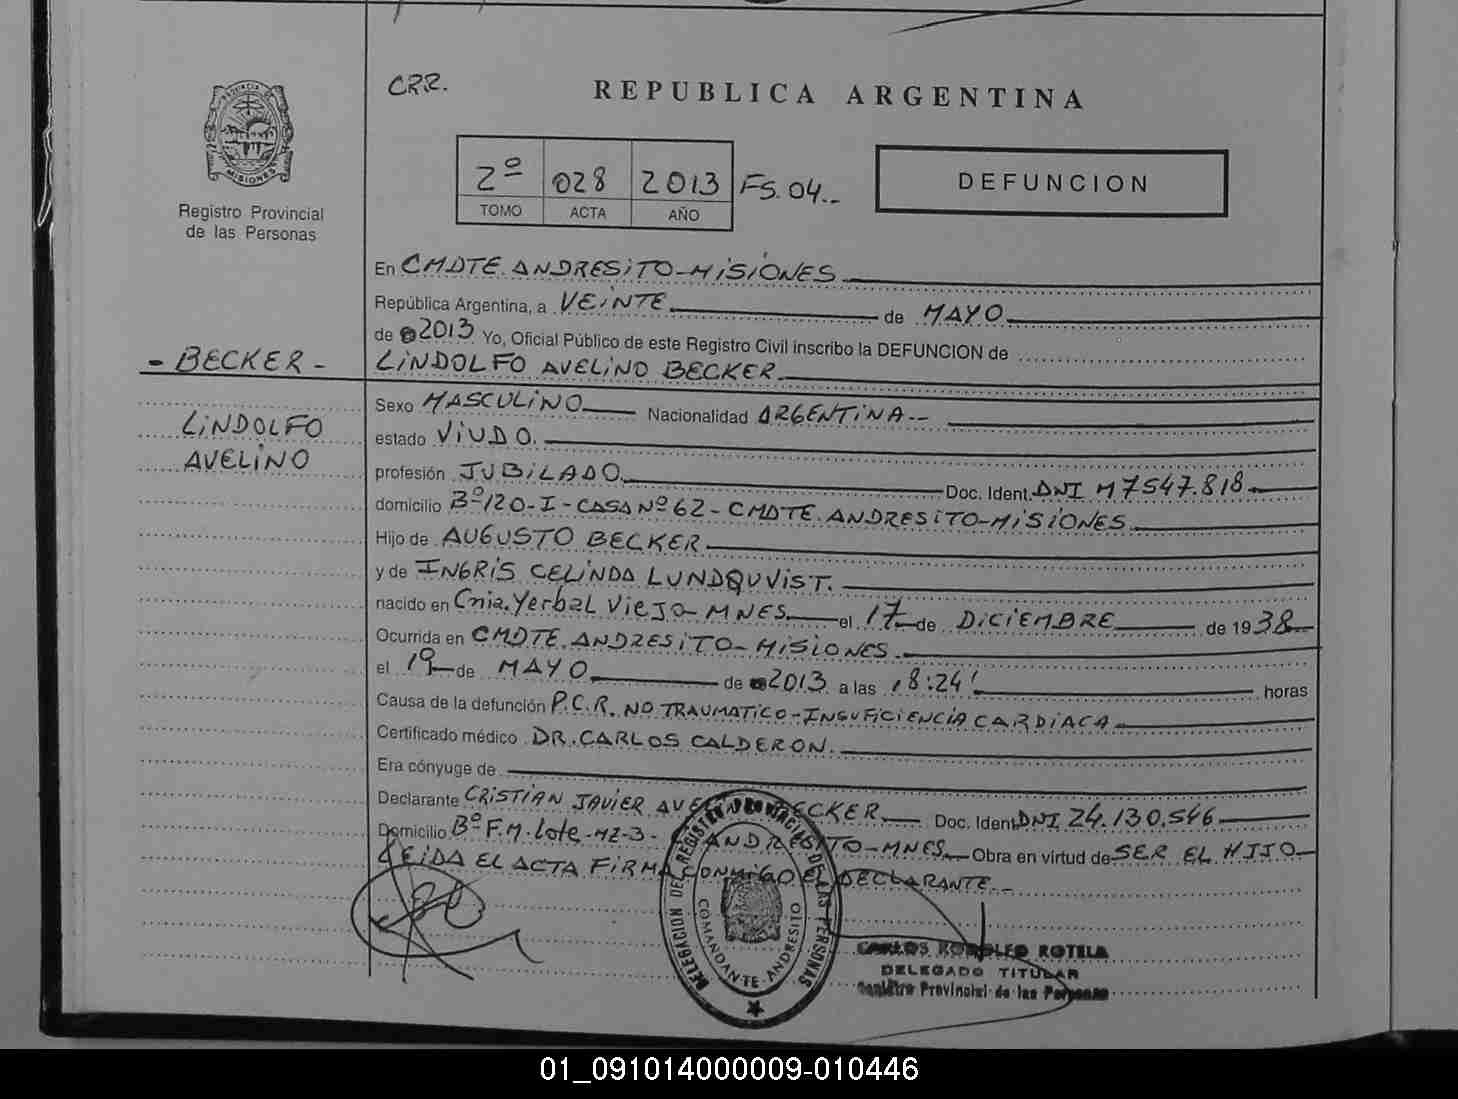 PROVINCIA DE
MISIONES
Registro Provincial
de las Personas
CRR.
REPUBLICA ARGENTINA
2º 028 2013 FS. 04..
TOMO ACTA AÑO
DEFUNCION
En CMDTE. ANDRESITO-MISIONES
República Argentina, a VEINTE de MAYO
de 2013 Yo, Oficial Público de este Registro Civil inscribo la DEFUNCION de
- BECKER - LINDOLFO AVELINO BECKER
LINDOLFO
AVELINO
Sexo MASCULINO Nacionalidad ARGENTINA.-
estado VIUDO.
profesión JUBILADO. Doc. Ident. DNI M7547.818
domicilio Bº 120-I-CASA Nº 62-CMDTE. ANDRESITO-MISIONES.
Hijo de AUGUSTO BECKER
y de INGRIS CELINDA LUNDQUVIST.
nacido en Cnia. Yerbal Viejo-MNES el 17 de DICIEMBRE de 1938
Ocurrida en CMDTE. ANDRESITO-MISIONES.
el 19 de MAYO de 2013 a las 18:24' horas
Causa de la defunción P.C.R. NO TRAUMATICO-INSUFICIENCIA CARDIACA
Certificado médico DR. CARLOS CALDERON.
Era cónyuge de
Declarante CRISTIAN JAVIER AVELINO BECKER. Doc. Ident. DNI 24.130.546
Domicilio Bº F.M. Lote-MZ-3- ANDRESITO-MNES. Obra en virtud de SER EL HIJO
LEIDA EL ACTA FIRMA CONMIGO EL DECLARANTE.-
DELEGACION DEL REGISTRO PROVINCIAL DE LAS PERSONAS
COMANDANTE ANDRESITO
CARLOS RODOLFO ROTELA
DELEGADO TITULAR
Registro Provincial de las Personas
01_091014000009-010446